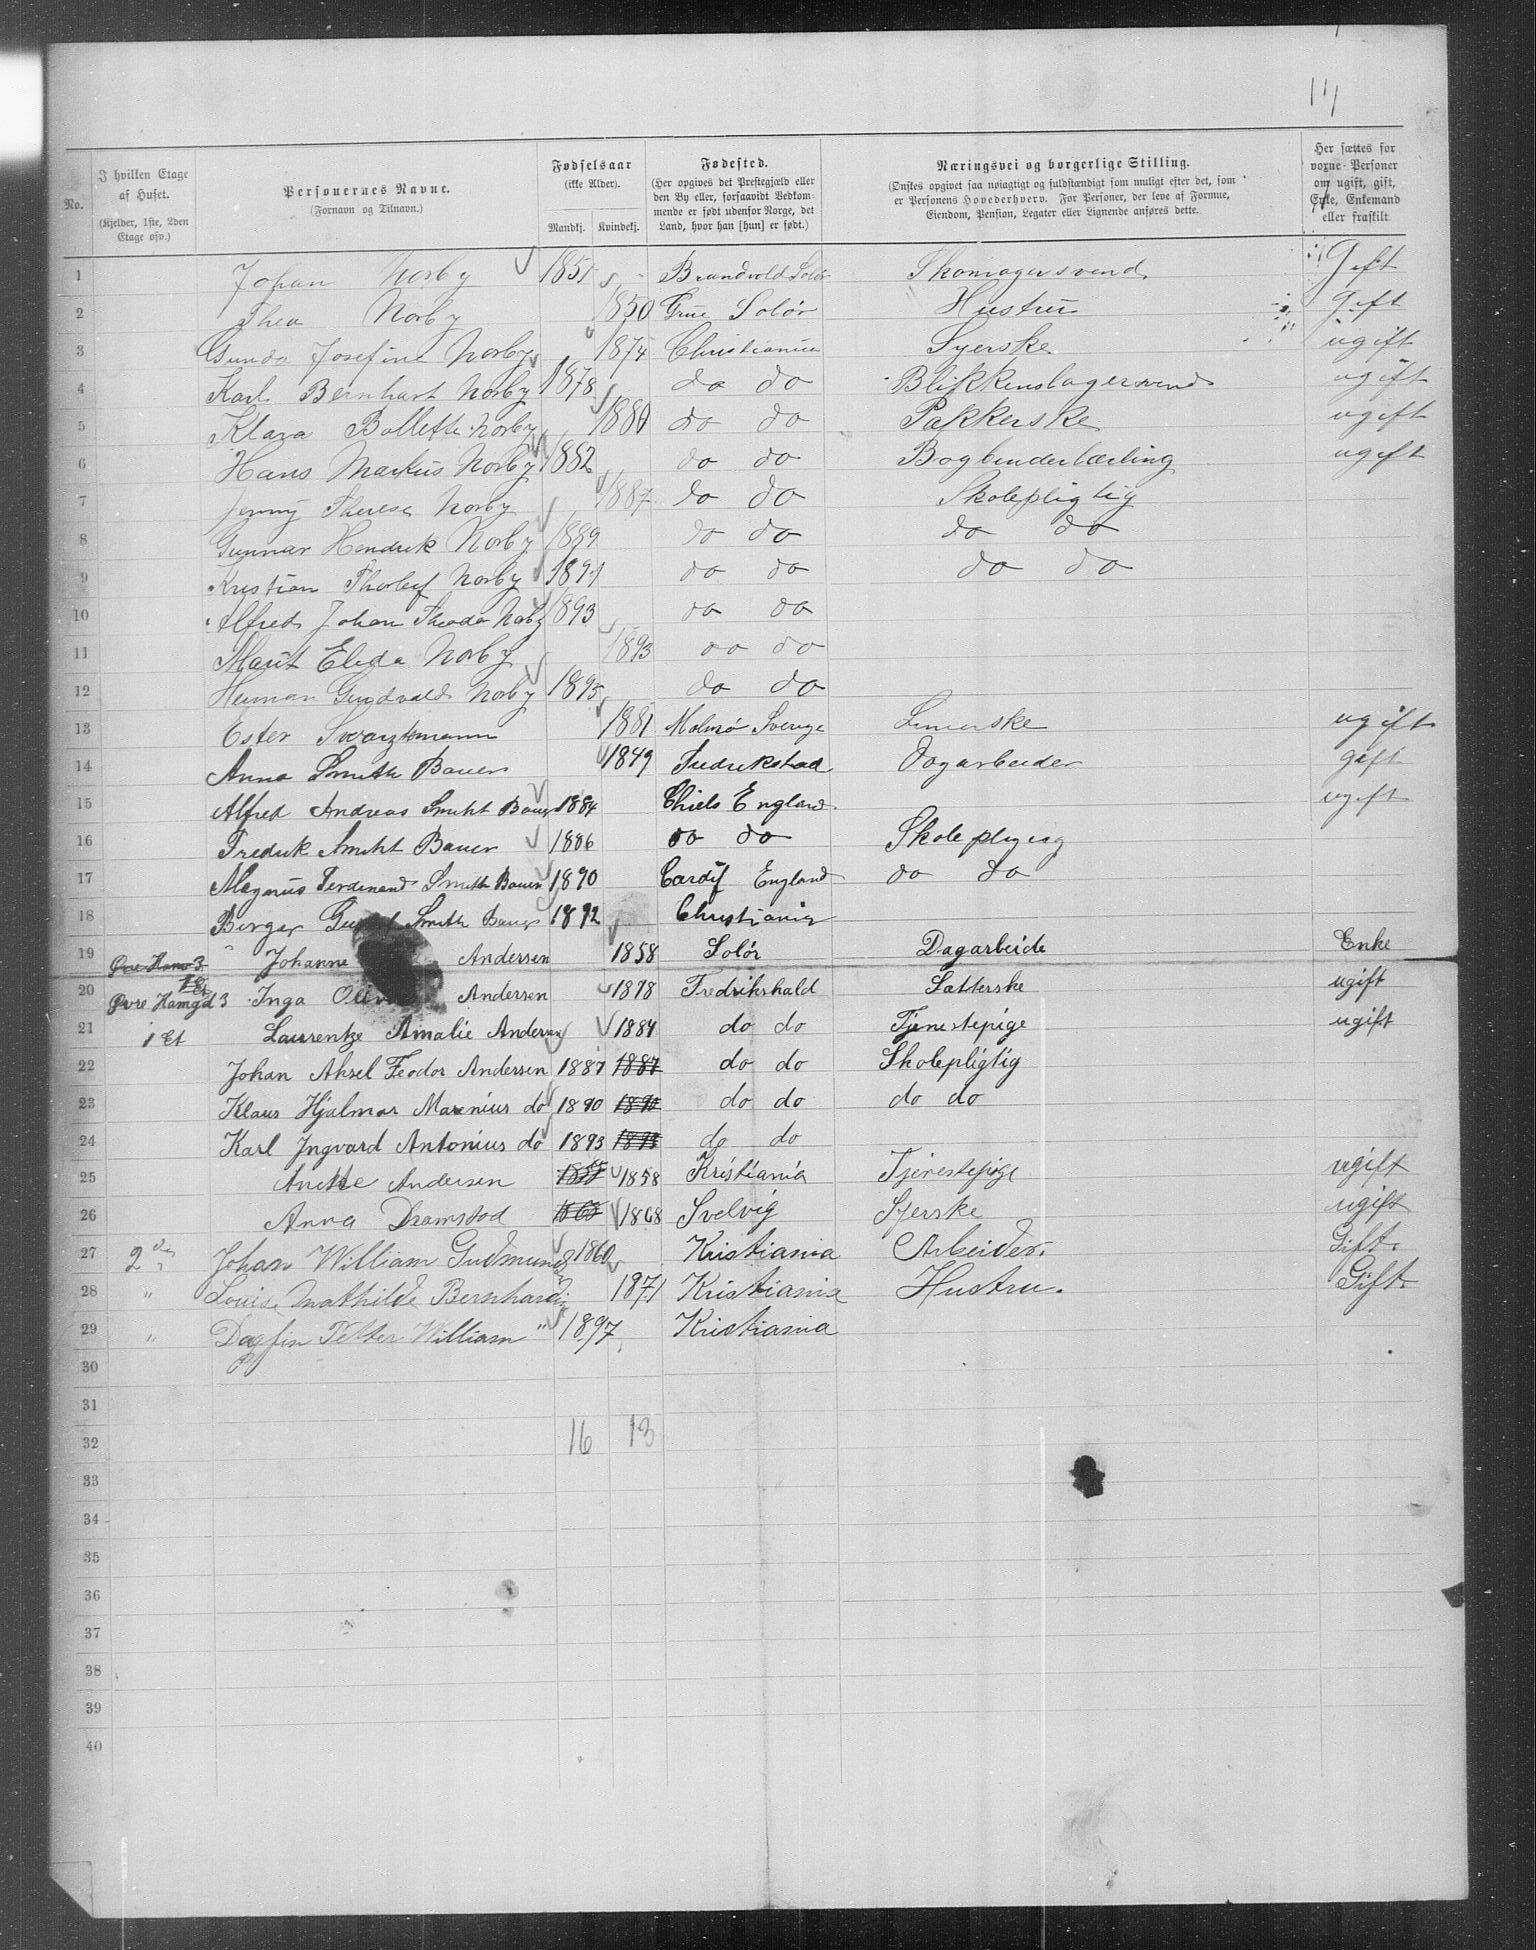 No.
I hvilken Etage af Huset. (Kjelder, 1ste, 2den Etage osv.)
Personernes Navne. (Fornavn og Tilnavn.)
Fødselsaar (ikke Alder). Mandkj. Kvindekj.
Fødested. (Her opgives det Prestegjæld eller den By eller, forsaavidt Vedkommende er født udenfor Norge, det Land, hvor han [hun] er født.)
Næringsvei og borgerlige Stilling. (Ønskes opgivet saa nøiagtigt og fuldstændigt som muligt efter det, som er Personens Hovederhverv. For Personer, der leve af Formue, Eiendom, Pension, Legater eller Lignende anføres dette.
Her sættes for voxne Personer om ugift, gift, Enke, Enkemand eller fraskilt.
1 Johan Norby 1851 Brandvold Solør Skomagersvend Gift
2 Thea Norby 1850 Grue Solør Hustru gift
3 Gunda Josefine Norby 1874 Christiania Syerske ugift
4 Karl Bernhart Norby 1878 do do Blikkenslagersvend ugift
5 Klara Bollette Norby 1880 do do Pakkerske ugift
6 Hans Markus Norby 1882 do do Bogbinderlærling ugift
7 Jenny Therese Norby 1887 do do Skolepligtig
8 Gunnar Hendrik Norby 1889 do do do do
9 Kristian Thorleif Norby 1891 do do do do
10 Alfred Johan Theodor Norby 1893 do do
11 Marit Elida Norby 1893 do do
12 Herman Gundvald Norby 1895 do do
13 Ester Svarzkmann 1881 Malmø Sverige Limerske ugift
14 Anna Smith Bauer 1849 Fredrikstad Dagarbeider gift
15 Alfred Andreas Smiht Bauer 1884 Chiels England ugift
16 Fredrik Smiht Bauer 1886 do do Skolepligtig
17 Magnus Ferdinand Smith Bauer 1890 Cardif England do do
18 Birger Smith Bauer 1892 Christiania
19 Øvre Hamg 3 Johanne Andersen 1858 Solør Dagarbeide Enke
20 1 Et Øvre Hamgd 3 Inga Andersen 1878 Fredrikshald Sætterske ugift
21 1 Et Laurentze Amalie Andersen 1884 do do Tjenestepige ugift
22 Johan Aksel Feodor Andersen 1887 1887 do do Skolepligtig
23 Klaus Hjalmar Marenius do 1890 1890 do do do do
24 Karl Ingvard Antonius do 1893 1893 do do
25 Anette Andersen 1858 1858 Kristiania Tjenestepige ugift
26 Anna Dramstad 1868 1868 Svelvig Syerske ugift
27 2den Johan William Gudmundsen 1860 Kristiania Arbeider. Gift.
28 " Louise Mathilde Bernhardine 1871 Kristiania Hustru. Gift.
29 " Dagfin Petter William " 1897 Kristiania
30
31
32 16 13
33
34
35
36
37
38
39
40